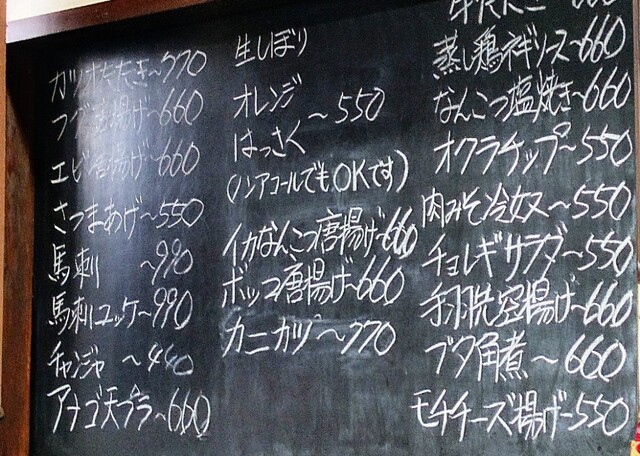 カツオたたき~770
フグ唐揚げ~660
エビ唐揚げ~660
さつまあげ~550
馬刺 ~990
馬刺ユッケ~990
チャンジャ ~440
アナゴ天プラ~660
生しぼり
オレンジ
~550
はっさく
(ノンアコールでもOKです)
イカなんこつ唐揚げ~660
ボッコ唐揚げ~660
カニカツ~770
蒸し鶏ネギソース~660
なんこつ塩焼き~660
オクラチップ~550
肉みそ冷奴~550
チョレギサラダ~550
手羽先空揚げ~660
ブタ角煮~660
モチチーズ揚げ~550